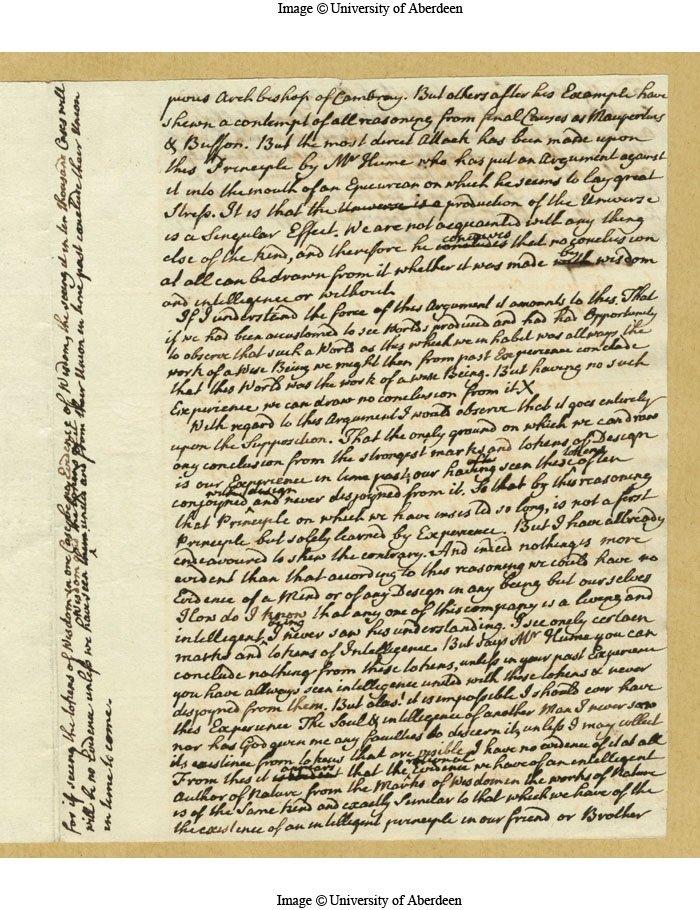 Image © University of Aberdeen
pious Archbishop of Cambray. But others after his Example have
shewn a contempt of all reasoning from final Causes as Maupertuis
& Buffon. But the most direct Attack has been made upon
this Principle by Mr Hume who has put an Argument against
it into the mouth of an Epicurean on which he seems to lay great
Stress. It is that the Universe is a production of the Universe
is a Singular Effect. We are not acquainted with any thing
else of the kind, and therefore he conceives that no conclusion
at all can be drawn from it whether it was made by wisdom
and intelligence or without
If I understand the force of this Argument it amounts to this. That
if we had been accustomed to see Worlds produced and had had Opportunity
to observe that such a World as this which we inhabit was allways the
work of a Wise Being we might then from past Experience conclude
that this World was the work of a wise Being. But having no such
Experience, we can draw no conclusion from it X
With regard to this Argument I would observe that it goes entirely
upon the Supposition. That the onely ground on which we can draw
any conclusion from the strongest marks and tokens of Design
is our Experience in time past, our having often seen these tokens
conjoyned with design and never disjoyned from it. So that by this reasoning
that Principle on which we have insisted so long, is not a first
Principle but solely learned by Experience. But I have allready
endeavoured to shew the contrary. And indeed nothing is more
evident than that according to this reasoning we could have no
Evidence of a Mind or of any Design in any being but ourselves
How do I know that any one of this company is a living and
intelligent being I never saw his understanding. I see onely certain
marks and tokens of Intelligence. But says Mr Hume you can
conclude nothing from these tokens, unless in your past Experience
you have allways seen intelligence united with these tokens & never
disjoyned from them. But alas! it is impossible I should ever have
this Experience The Soul & intelligence of another Man I never saw
nor has God given me any faculties to discern it, unless I may collect
its existence from tokens that are visible I have no evidence of it at all
From this it appears that the rational Evidence we have of an intelligent
Author of Nature from the Marks of Wisdom in the works of Nature
is of the Same kind and exactly Similar to that which we have of the
the existence of an intelligent principle in our friend or Brother
For if seeing the tokens of Wisdom in one Case be no Evidence of Wisdom, the seeing it in ten thousand Cases will
will be no Evidence unless we have seen Wisdom and from their Union in time past conclude their Union
in time to come.
Image © University of Aberdeen